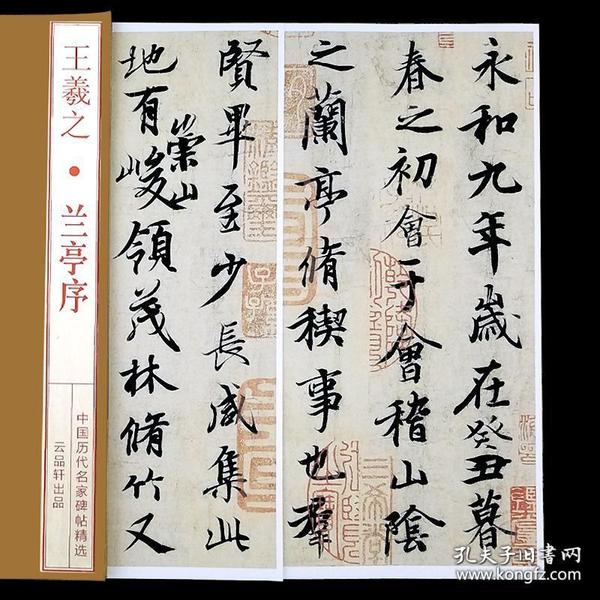 王羲之·兰亭序
中国历代名家碑帖精选
云品轩出品
永和九年歲在癸丑暮
春之初會于會稽山陰
之蘭亭脩稧事也羣
賢畢至少長咸集此
地有崇山峻領茂林脩竹又
孔夫子旧书网
www.kongfz.com